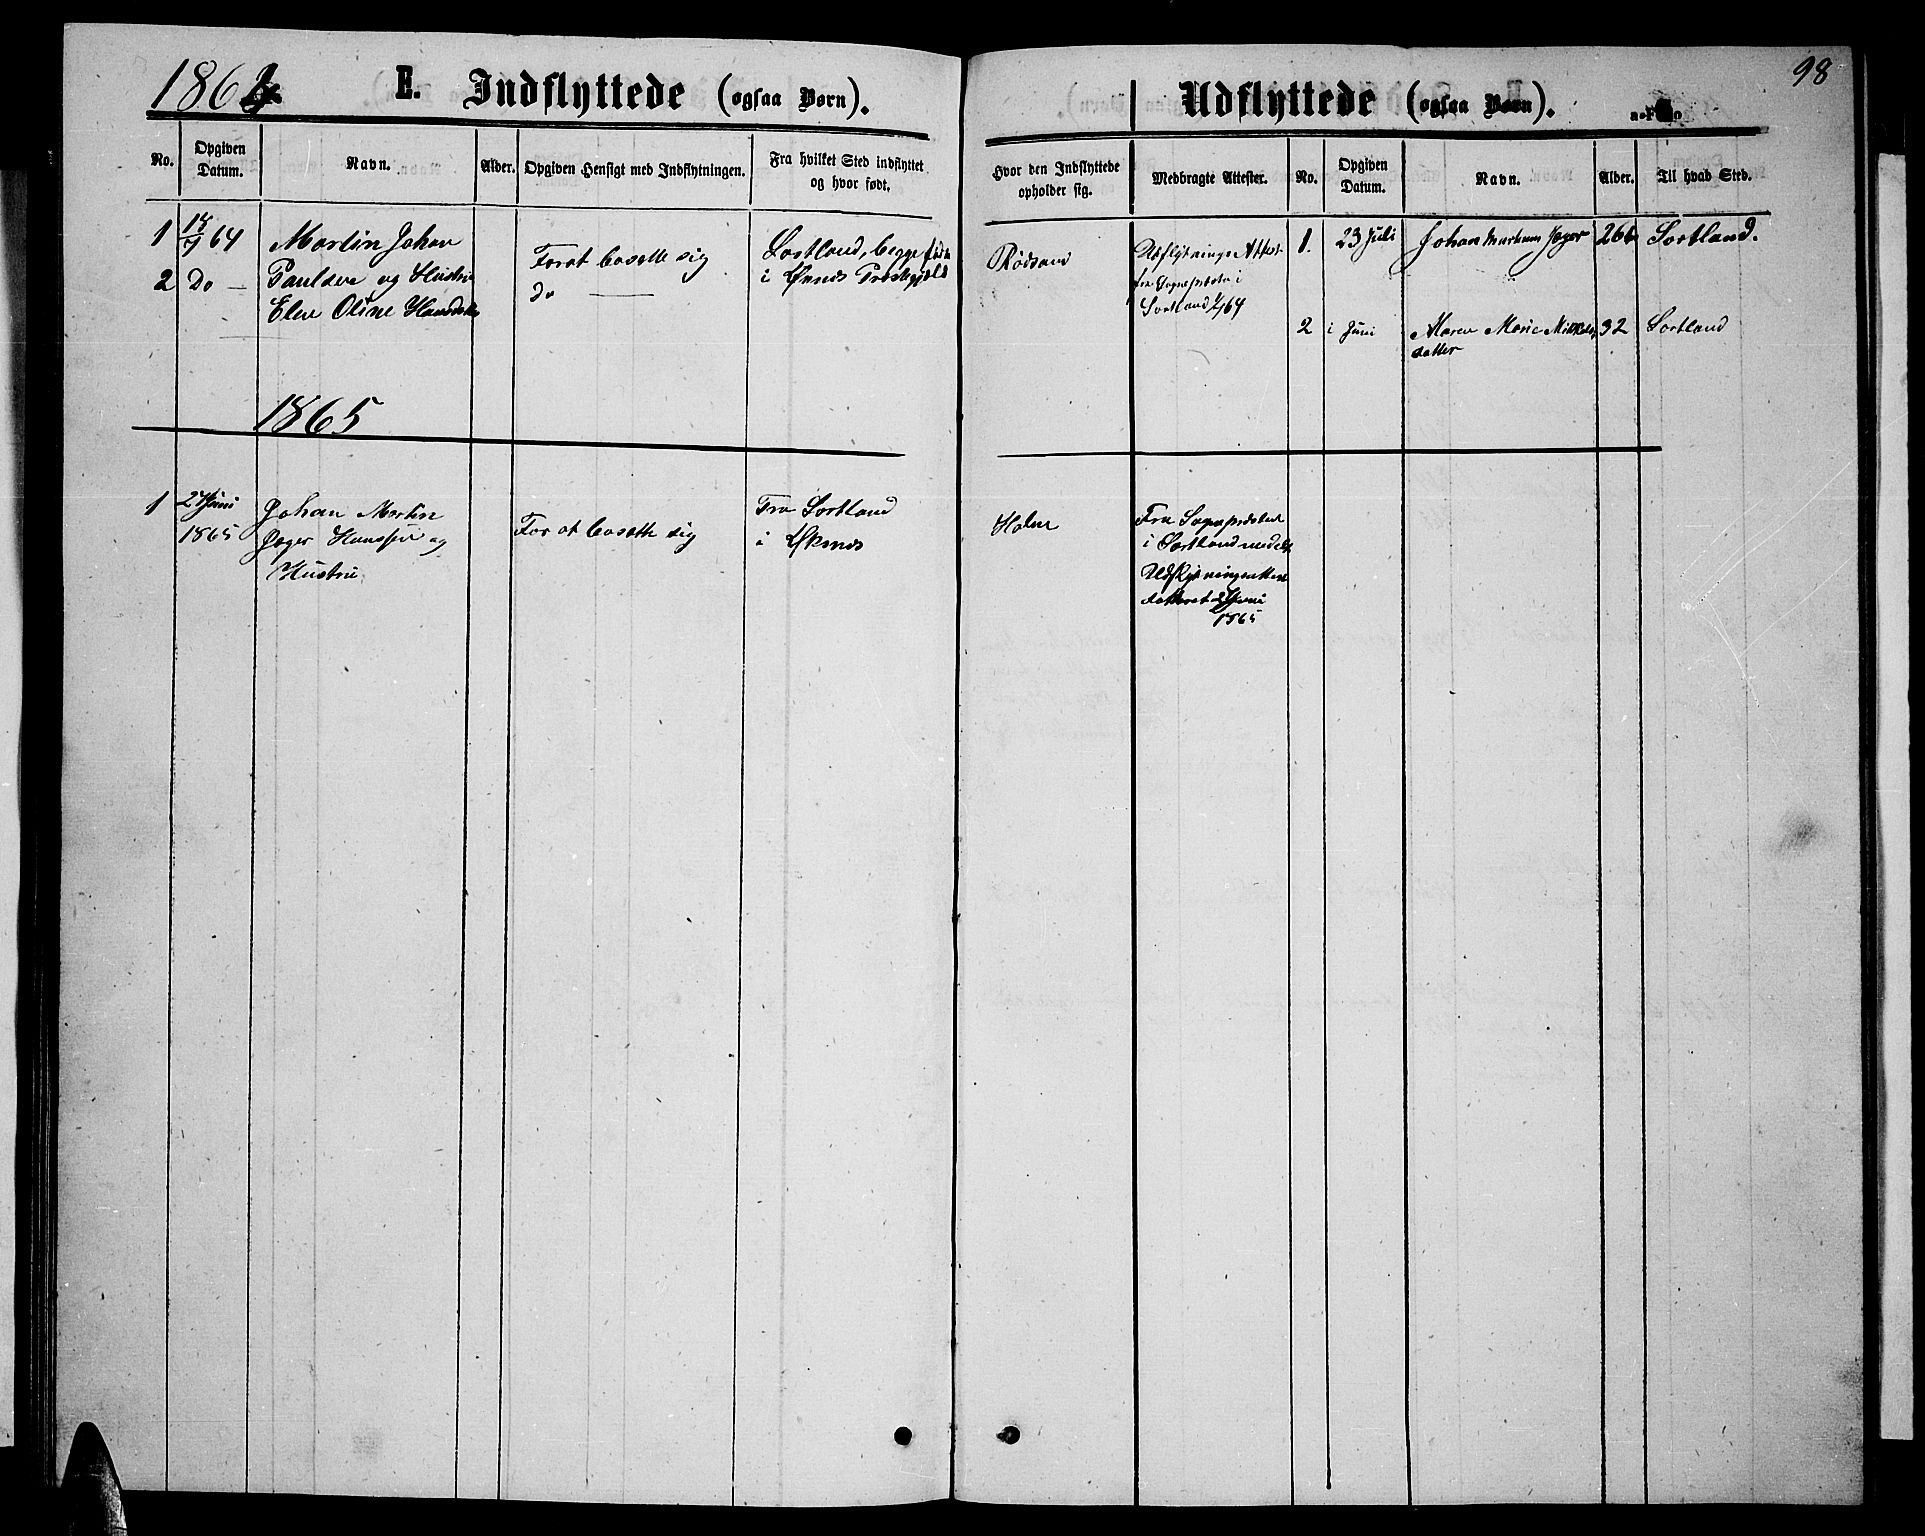 98
1864 E. Indflyttede (ogsaa Børn).
No. Opgiven Datum. Navn. Alder. Opgiven Hensigt med Indflytningen. Fra hvilket Sted indflyttet og hvor født.
1 18/7 64 Martin Johan
2 Do — Paulsen og Hustru
Elen Oline Hansdtr
Forat bosette sig
Do —
Sortland, begge født
i Præstegjeld
1865
1 2 Juni
1865
Johan Martin
Jæger Hansen og
Hustru
For at bosætte sig
Fra Sortland
i Øksnes
Udflyttede (ogsaa Børn).
Hvor den Indflyttede opholder sig. Medbragte Attester. No. Opgiven Datum. Navn. Alder. Til hvad Sted.
Rødsand
Udflytnings Attest
fra Sognepræsten i
Sortland 64
1. 23 Juli Johan Jæger 26 Sortland.
2 i Juni Maren Marie
datter
32 Sortland
Fra Sognepræsten
i Sortland
dateret Juni
1865